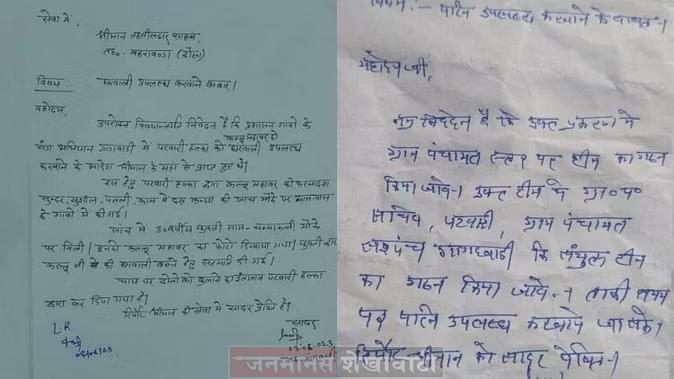 सेवा में,
श्रीमान तहसीलदार साहब,
तह० बहरावण्डा (दौसा)
विषय:- घरवाली उपलब्ध करवाने बाबत।
महोदय,
उपरोक्त विषयान्तर्गत निवेदन है कि प्रशासन गांवों के
कल्लू महावर को
संग अभियान गांगदवाडी में पटवारी हल्का को घरवाली उपलब्ध
करवाने के आदेश श्रीमान के यहां से प्राप्त हुए थे।
इस हेतु पटवारी हल्का द्वारा कल्लू महावर की फरमाइश
सुन्दर, सुशील, पतली, काम में दक्ष कन्या की जांच मौके पर
के गांवो में की गई।
जांच में 30 वर्षीय युवती नाम- चम्पाकली मौके
पर मिली। इनको कल्लू महावर का फोटो दिखाया गया। युवती द्वारा
कल्लू जी की घरवाली बनने हेतु सहमति दी गई।
चाय पर दोनो को बुलाने पटवारी हल्का
द्वारा कर दिया गया है।
रिपोर्ट श्रीमान की सेवा में सादर प्रेषित है।
सादर
L.R.
विषय:- पत्नि उपलब्ध करवाने के बाबत।
महोदय जी,
निवेदन है कि उक्त प्रकरण में
ग्राम पंचायत स्तर पर टीम का गठन
किया जावे। उक्त टीम में ग्रा० प०
सचिव, पटवारी, ग्राम पंचायत
सरपंच गांगदवाडी कि संयुक्त टीम
का गठन किया जावे। ताकी समय
पर पत्नि उपलब्ध करवाये जा सके।
रिपोर्ट श्रीमान को सादर प्रेषित।
जनमानस शेखावाटी